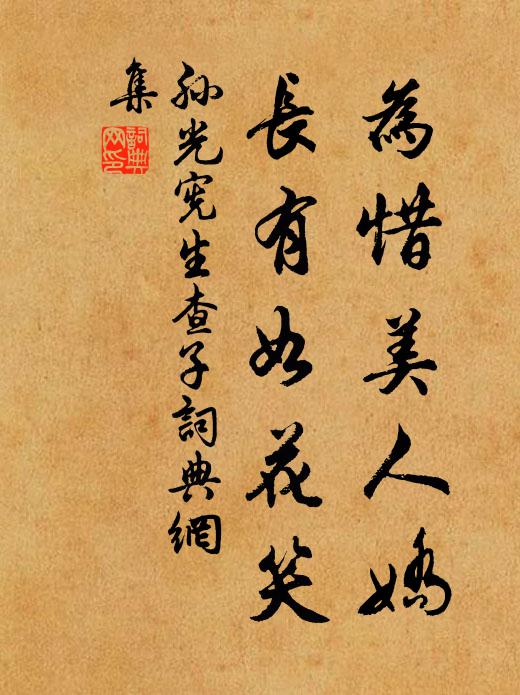 為惜美人嬌
長有如花笑
孫光憲生查子詞典網
集
詞典
网印